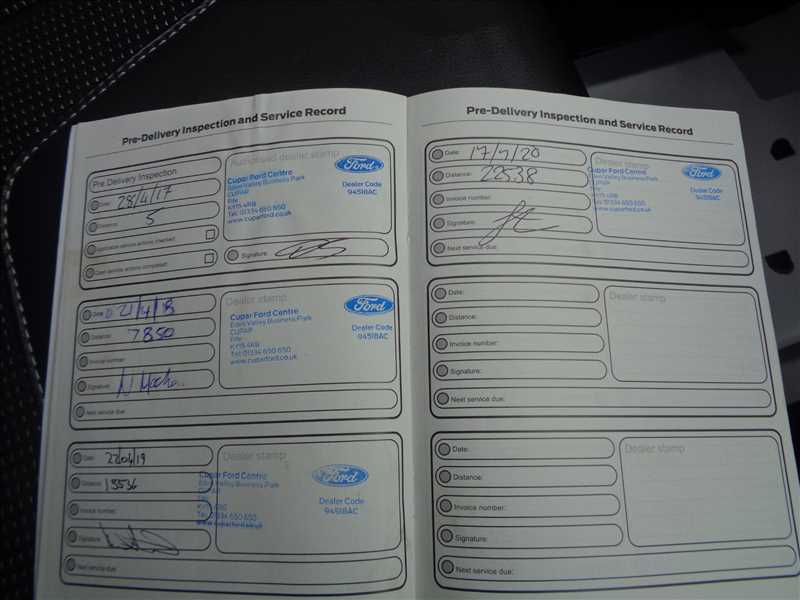 Pre-Delivery Inspection and Service Record
Pre Delivery Inspection
Date: 28/4/17
Distance: 5
Applicable service actions checked:
Open service actions completed:
Authorised dealer stamp
Cupar Ford Centre
Eden Valley Business Park
CUPAR
Fife
KY15 4RB
Tel: 01334 650 650
www.cuparford.co.uk
Ford
Dealer Code
94518AC
Signature:
Date: 21/4/18
Distance: 7850
Invoice number:
Signature:
Next service due:
Dealer stamp
Cupar Ford Centre
Eden Valley Business Park
CUPAR
Fife
KY15 4RB
Tel: 01334 650 650
www.cuparford.co.uk
Ford
Dealer Code
94518AC
Date: 22/04/19
Distance: 13536
Invoice number:
Signature:
Next service due:
Dealer stamp
Cupar Ford Centre
Eden Valley Business Park
CUPAR
Fife
KY15 4RB
Tel: 01334 650 650
www.cuparford.co.uk
Ford
Dealer Code
94518AC
Pre-Delivery Inspection and Service Record
Date: 17/7/20
Distance: 22538
Invoice number:
Signature:
Next service due:
Dealer stamp
Cupar Ford Centre
Eden Valley Business Park
CUPAR
Fife
KY15 4RB
Tel: 01334 650 650
www.cuparford.co.uk
Ford
Dealer Code
94518AC
Date:
Distance:
Invoice number:
Signature:
Next service due:
Dealer stamp
Date:
Distance:
Invoice number:
Signature:
Next service due:
Dealer stamp